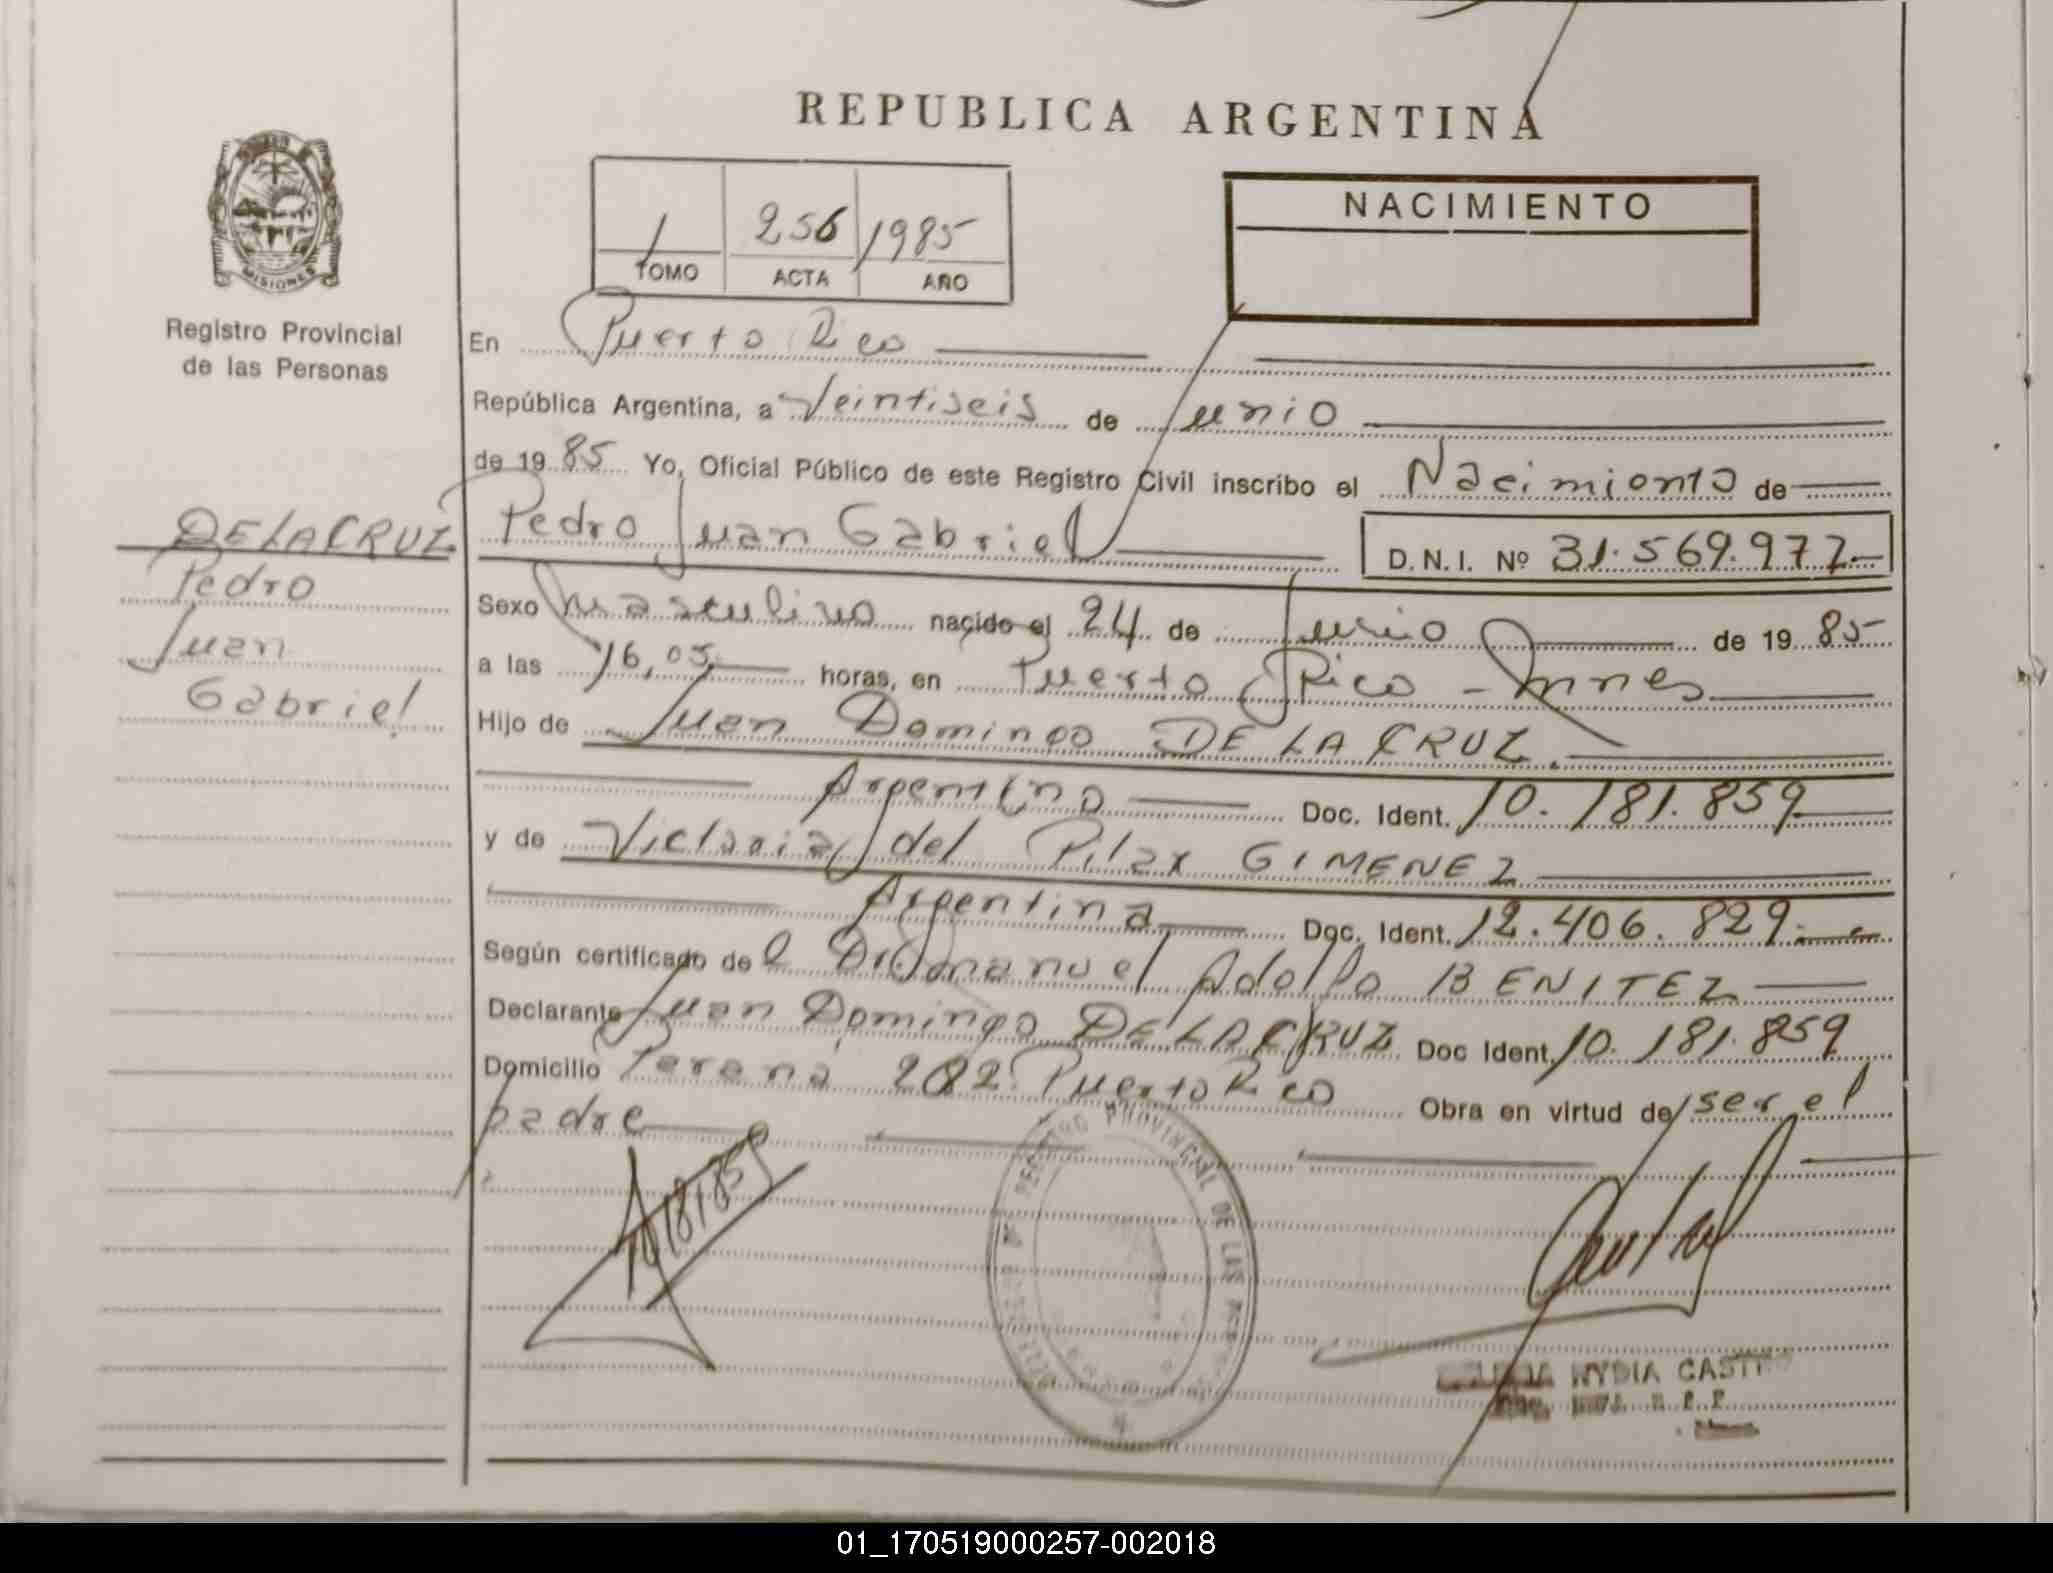 REPUBLICA ARGENTINA
MISIONES
Registro Provincial
de las Personas
1 256 1985
TOMO ACTA AÑO
NACIMIENTO
En Puerto Rico
República Argentina, a Veintiseis de Junio
de 19 85 Yo, Oficial Público de este Registro Civil inscribo el Nacimiento de
DE LA CRUZ Pedro Juan Gabriel D.N.I. Nº 31.569.977
Pedro
Juan
Gabriel
Sexo masculino nacido el 24 de Junio de 19 85
a las 16,05 horas, en Puerto Rico - Mnes
Hijo de Juan Domingo DE LA CRUZ.
Argentino Doc. Ident. 10.181.859
y de Victoria del Pilar GIMENEZ
Argentina Doc. Ident. 12.406.829
Según certificado de l Dr. Manuel Adolfo BENITEZ
Declarante Juan Domingo DE LA CRUZ Doc Ident. 10.181.859
Domicilio Parana 282 Puerto Rico Obra en virtud de ser el
padre
10181859
REGISTRO PROVINCIAL DE LAS
NYDIA CASTRO
01_170519000257-002018